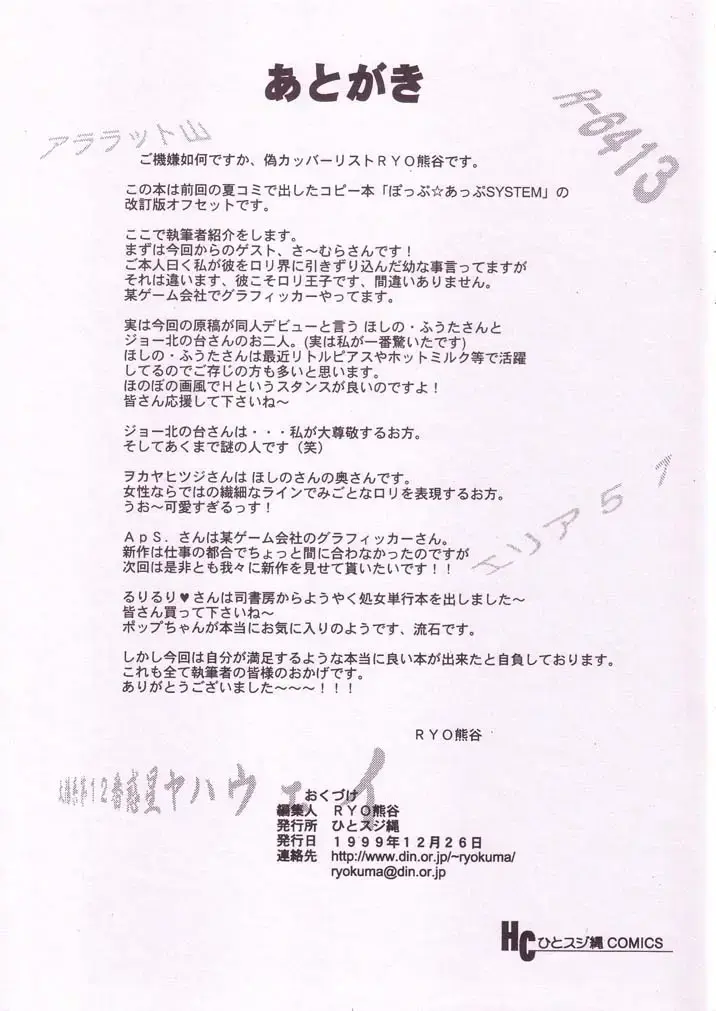 あとがき
アララット山
R-6413
ご機嫌如何ですか、偽カッバーリストRYO熊谷です。
この本は前回の夏コミで出したコピー本「ぽっぷ☆あっぷSYSTEM」の
改訂版オフセットです。
ここで執筆者紹介をします。
まずは今回からのゲスト、さ〜むらさんです！
ご本人曰く私が彼をロリ界に引きずり込んだ幼な事言ってますが
それは違います、彼こそロリ王子です、間違いありません。
某ゲーム会社でグラフィッカーやってます。
実は今回の原稿が同人デビューと言う ほしの・ふうたさんと
ジョー北の台さんのお二人。(実は私が一番驚いたです)
ほしの・ふうたさんは最近リトルピアスやホットミルク等で活躍
してるのでご存じの方も多いと思います。
ほのぼの画風でＨというスタンスが良いのですよ！
皆さん応援して下さいね〜
ジョー北の台さんは・・・私が大尊敬するお方。
そしてあくまで謎の人です（笑）
エリア５１
ヲカヤヒツジさんは ほしのさんの奥さんです。
女性ならではの繊細なラインでみごとなロリを表現するお方。
うお〜可愛すぎるっす！
ＡｐＳ．さんは某ゲーム会社のグラフィッカーさん。
新作は仕事の都合でちょっと間に合わなかったのですが
次回は是非とも我々に新作を見せて貰いたいです！！
るりるり♥さんは司書房からようやく処女単行本を出しました〜
皆さん買って下さいね〜
ポップちゃんが本当にお気に入りのようです、流石です。
しかし今回は自分が満足するような本当に良い本が出来たと自負しております。
これも全て執筆者の皆様のおかげです。
ありがとうございました〜〜〜！！！
ＲＹＯ熊谷
太陽系第12番惑星ヤハウェイ
おくづけ
編集人　ＲＹＯ熊谷
発行所　ひとスジ縄
発行日　１９９９年１２月２６日
連絡先　http://www.din.or.jp/~ryokuma/
ryokuma@din.or.jp
HC ひとスジ縄 COMICS